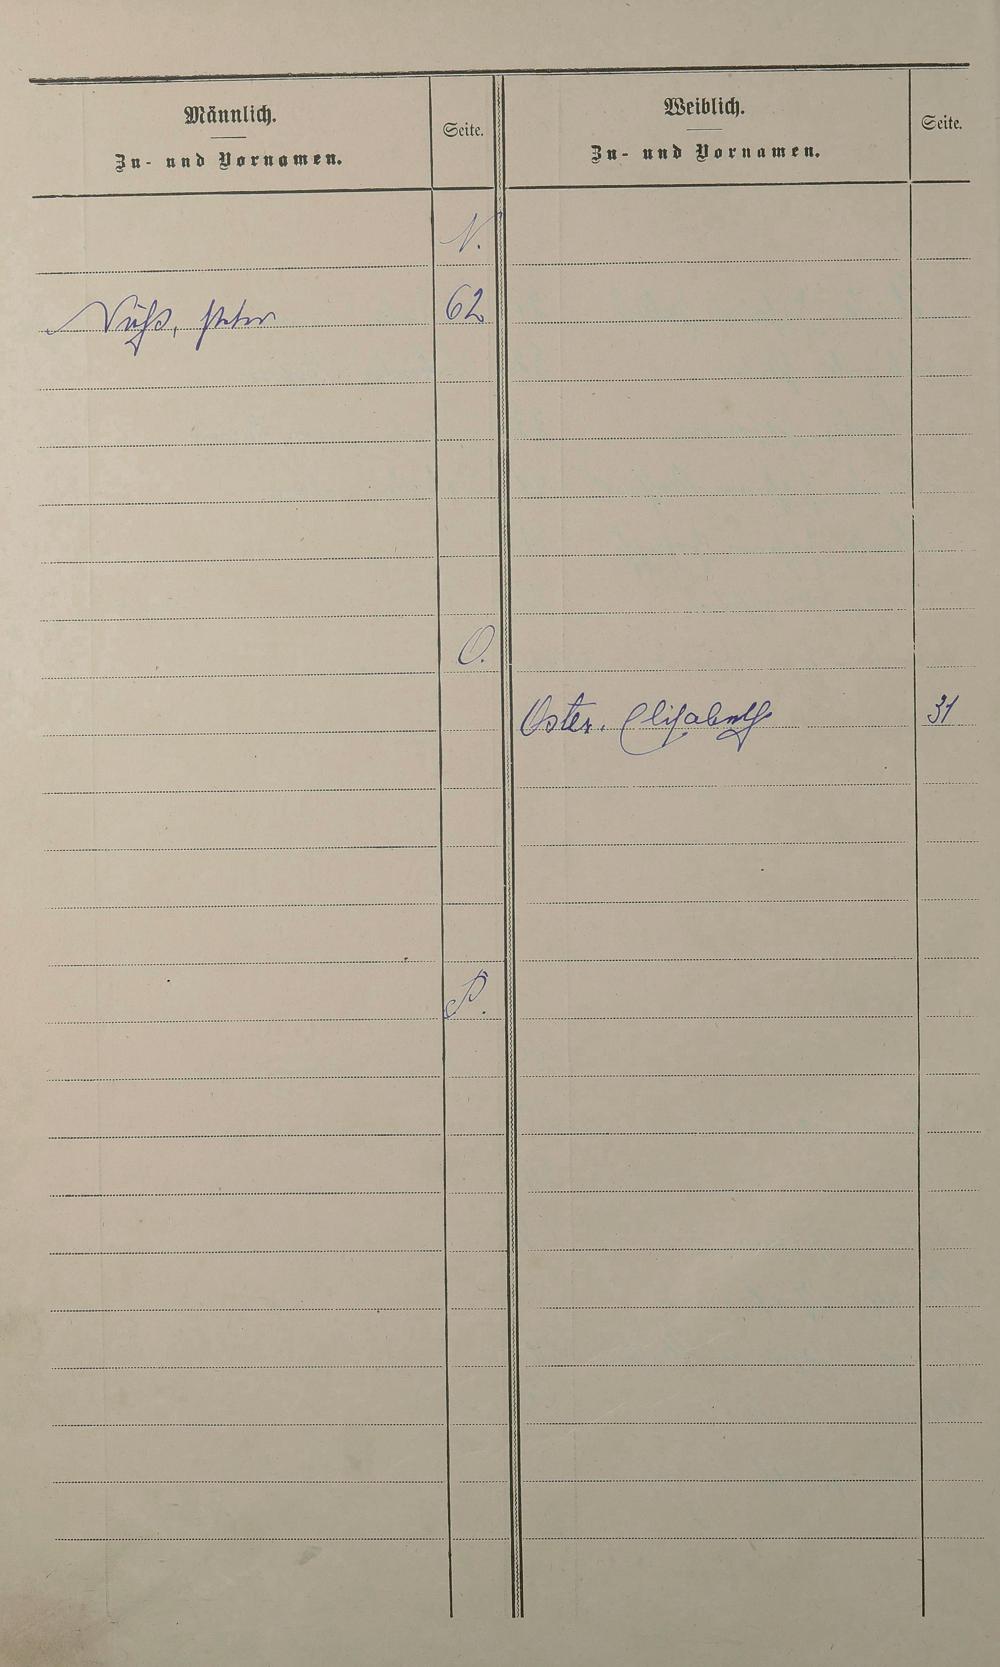 Männlich.
Zu- und Vornamen.
Seite.
Weiblich.
Zu- und Vornamen.
Seite.
N.
Nüß, Peter
62
O.
Oster, Elisabeth
31
P.